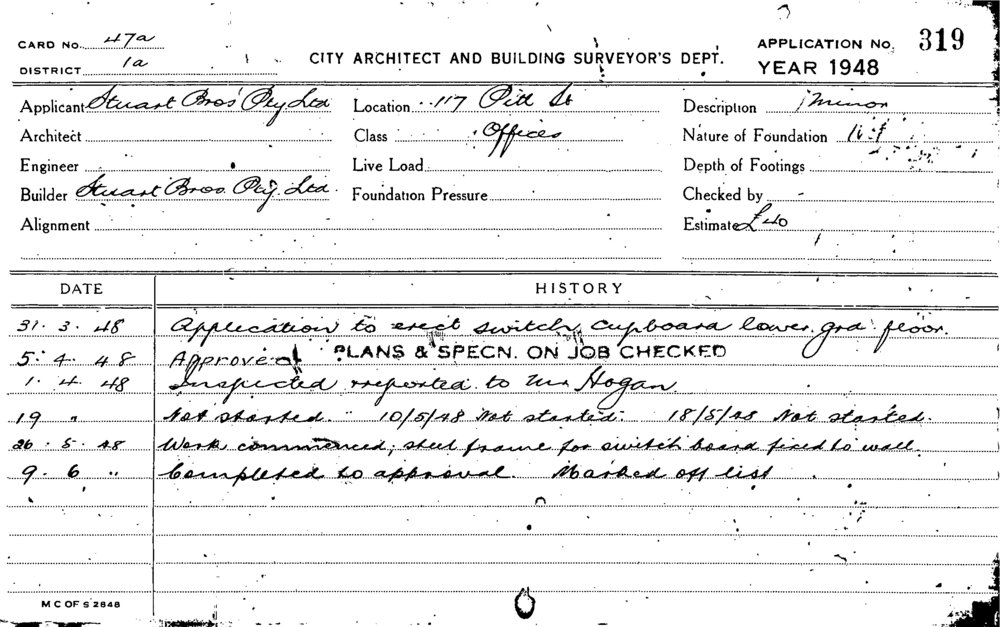 CARD No. 47a
DISTRICT 1a
CITY ARCHITECT AND BUILDING SURVEYOR'S DEPT.
APPLICATION No. 319
YEAR 1948
Applicant Stuart Bros' Pty Ltd Location 117 Pitt St Description Minor
Architect Class Offices Nature of Foundation
Engineer Live Load Depth of Footings
Builder Stuart Bros. Pty. Ltd. Foundation Pressure Checked by -
Alignment Estimate £40
DATE HISTORY
31. 3. 48 Application to erect switch cupboard lower grd floor.
5. 4. 48 Approved PLANS & SPECN. ON JOB CHECKED
1. 4. 48 Inspected & reported to Mr Hogan
19 " Not started. 10/5/48 Not started. 18/5/48 Not started.
26. 5. 48 Work commenced; steel frame for switch board fixed to wall.
9. 6 " Completed to approval. Marked off list
M C OF S 2848